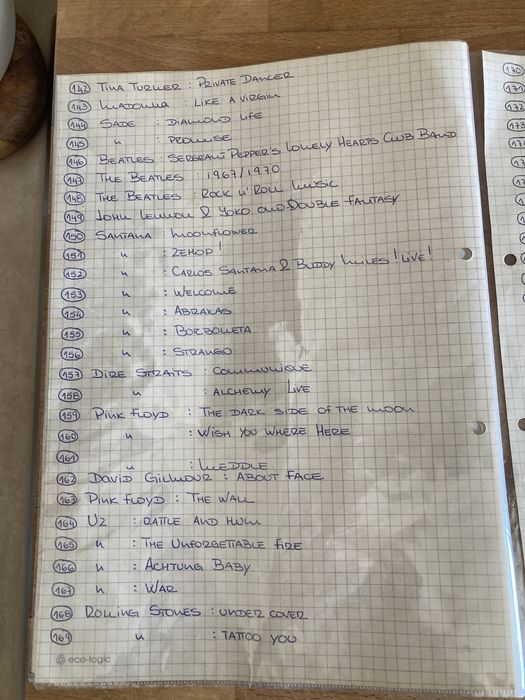 142 TINA TURNER : PRIVATE DANCER
143 MADONNA : LIKE A VIRGIN
144 SADE : DIAMOND LIFE
145 " : PROMISE
146 BEATLES : SERGEANT PEPPER'S LONELY HEARTS CLUB BAND
147 THE BEATLES : 1967/1970
148 THE BEATLES : ROCK N' ROLL MUSIC
149 JOHN LENNON & YOKO ONO: DOUBLE FANTASY
150 SANTANA : MOONFLOWER
151 " : ZEBOP!
152 " : CARLOS SANTANA & BUDDY MILES! LIVE!
153 " : WELCOME
154 " : ABRAXAS
155 " : BORBOLLETA
156 " : STRANGO
157 DIRE STRAITS : COMMUNIQUE
158 " : ALCHEMY LIVE
159 PINK FLOYD : THE DARK SIDE OF THE MOON
160 " : WISH YOU WHERE HERE
161 " : MEDDLE
162 DAVID GILMOUR : ABOUT FACE
163 PINK FLOYD : THE WALL
164 U2 : RATTLE AND HUM
165 " : THE UNFORGETTABLE FIRE
166 " : ACHTUNG BABY
167 " : WAR
168 ROLLING STONES : UNDER COVER
169 " : TATTOO YOU
eco-logic
170
171
172
173